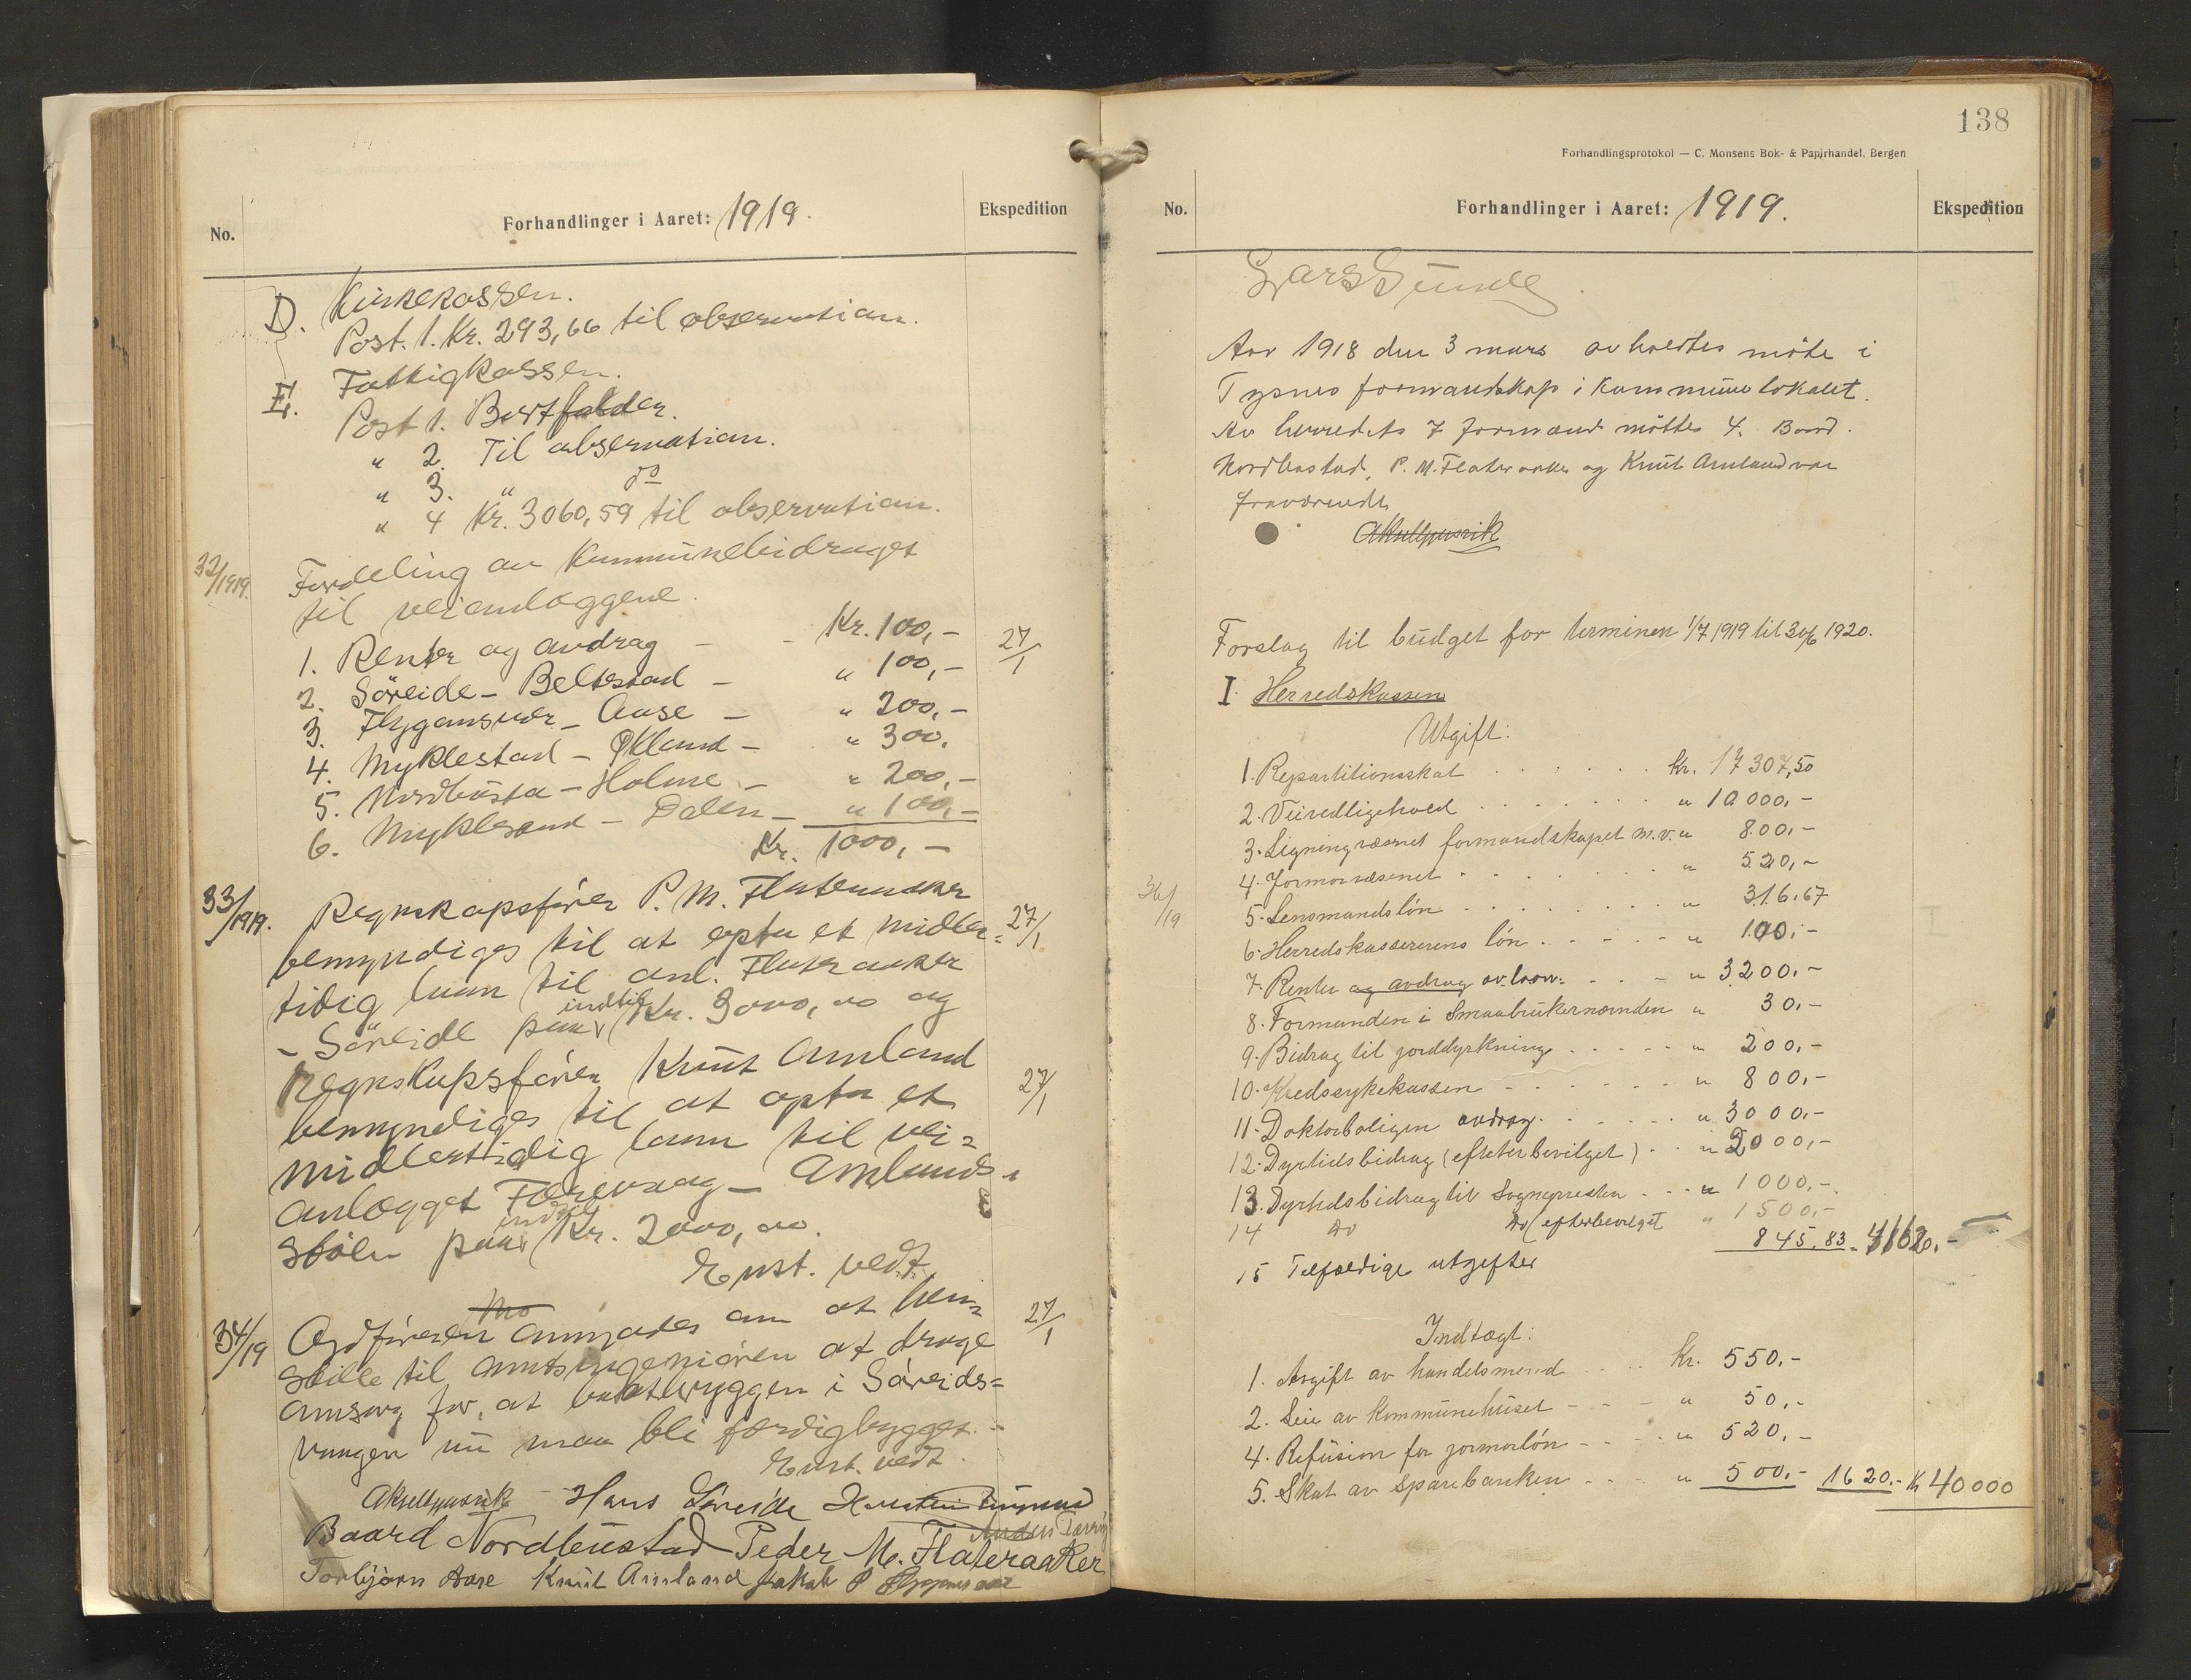 No.
Forhandlinger i Aaret: 1919.
Ekspedition
D. Kirkekassen.
Post. 1. Kr. 293,66 til observation.
E. Fattigkassen.
Post 1. Bortfalder.
" 2. Til observation.
" 3. " do
" 4 Kr. 3060,59 til observation.
32/1919. Fordeling av Kommunebidraget
til veianlæggene.
1. Renter og avdrag - - Kr. 100,- 27/1
2. Söreide - Beltestad - " 100,-
3. Flygansvær - Aase - " 200,-
4. Myklestad - Økland - " 300,
5. Nordbústa - Holme - " 200,-
6. Myklestad - Dalen - " 100,-
Kr. 1000,-
33/1919. Regnskapsfører P. M. Flateraaker 27/1
bemyndiges til at opta et midler=
tidig laan til anl. Flateraaker
- Söreide paa indtil Kr. 3000,00 og
Regnskapsfører Knut Amland 27/1
bemyndiges til at opta et
midlertidig laan til vei=
anlægget Færevaag - Amlands-
stölen paa indtil Kr. 2000,00.
Enst. vedt.
34/19 Ordføreren anmodes om at hen= 27/1
stille til amtsingeniøren at drage
omsorg for, at baatbryggen i Söreids=
vaagen nú maa bli færdigbygget.
Enst. vedt.
Hans Söreide
Anders
Baard Nordbustad Peder M. Flateraaker
Torbjörn Aase Knut Amland Jakob P
138
Forhandlingsprotokol — C. Monsens Bok- & Papirhandel, Bergen
No.
Forhandlinger i Aaret: 1919.
Ekspedition
Lars Sunde
Aar 1918 den 3 mars avholdtes möte i
Tysnes formandskap i kommunelokalet.
Av herredets 7 formænd möttes 4. Baard
Nordbustad, P. M. Flateraaker og Knut Amland var
fraværende
Forslag til budget for terminen 1/7 1919 til 30/6 1920.
I. Herredskassen
Utgift:
1. Repartitionsskat . . . . . . Kr. 17307,50
2. Veivedligehold . . . . . . . " 10000,-
3. Ligningvæsenet formandskapet m.v. " 800,-
36/19
4. Jormorvæsenet . . . . . . . " 520,-
5. Lensmandslön . . . . . . . . " 316,67
6. Herredskassererens lön . . . . . " 100,-
7. Renter og avdrag av laan. . . - " 3200,-
8. Formanden i Smaabrukernævnden " 30,-
9. Bidrag til jorddyrkning . . . . . " 200,-
10. Kredssykekassen - . . . . . . " 800,-
11. Doktorboligen avdrag. . . . . . " 3000,-
12. Dyrtidsbidrag (efterbevilget) . . " 2000,-
13. Dyrtidsbidrag til Sogneprestn . . . " 1000,-
14 Do Do (efterbevilget " 1500,-
15 Tilfældige utgifter 845,83
Indtægt:
1. Avgift av handelsmænd . . . . Kr. 550,-
2. Leie av kommunehúset - - - - " 50,-
4. Refusion for jormorlön - - - - " 520,-
5. Skat av sparebanken - - - - " 500,- 1620,- K 40000